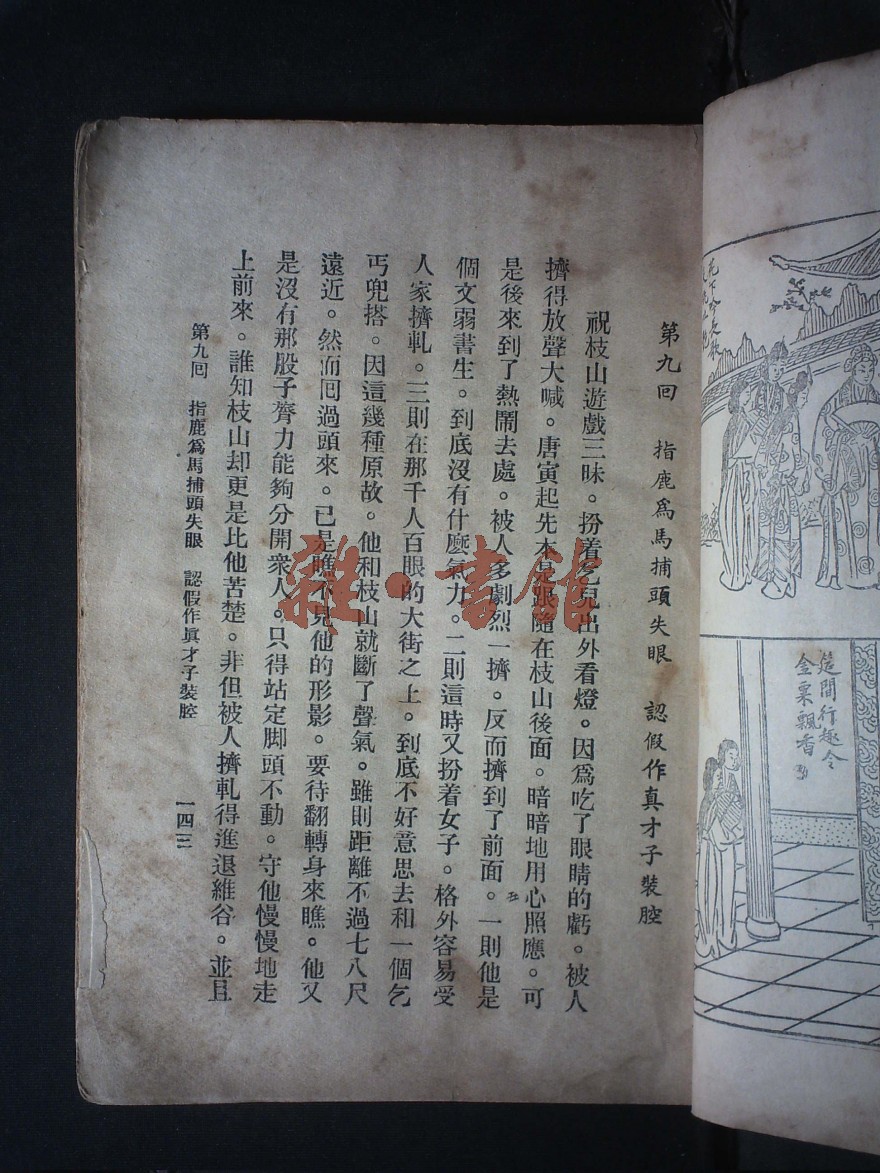 第九回　指鹿爲馬捕頭失眼　認假作真才子裝腔
祝枝山遊戲三昧。扮着乞兒出外看燈。因爲吃了眼睛的虧。被人
擠得放聲大喊。唐寅起先本是跟隨在枝山後面。暗暗地用心照應。可
是後來到了熱鬧去處。被人多劇烈一擠。反而擠到了前面。一則他是
個文弱書生。到底沒有什麽氣力。二則這時又扮着女子。格外容易受
人家擠軋。三則在那千人百眼的大街之上。到底不好意思去和一個乞
丐兜搭。因這幾種原故。他和枝山就斷了聲氣。雖則距離不過七八尺
遠近。然而囘過頭來。已是瞧不見他的形影。要待翻轉身來瞧。他又
是沒有那股子膂力能夠分開衆人。只得站定脚頭不動。守他慢慢地走
上前來。誰知枝山却更是比他苦楚。非但被人擠軋得進退維谷。並且
第九回　指鹿爲馬捕頭失眼　認假作眞才子裝腔
一四三
雜·書館
筵間行趣令
金粟飄香